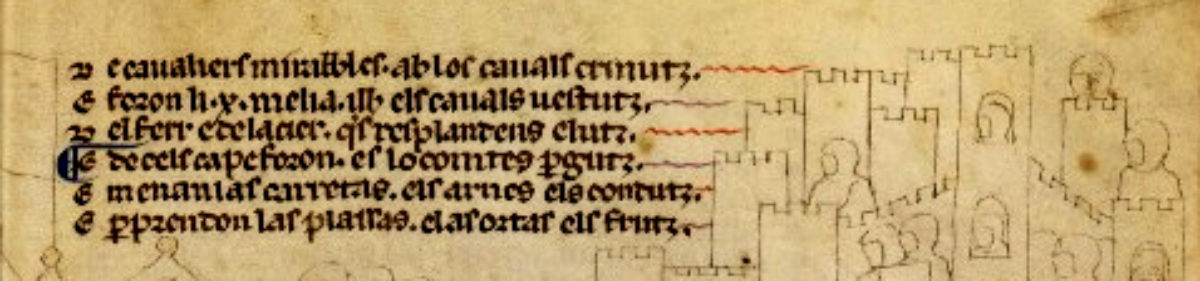 D e cauahers mirables. ab los cauals crinutz.
E foron li .x. melia. ab els cauals uestutz.
D el ferr e del acier. q̃s resplandens e lutz.
E de cels cap e foron. es lo comtes ꝑgutz.
E menan las carretas. els arnes els condutz.
E ꝑprendon las plassas. e las ortas els frutz.